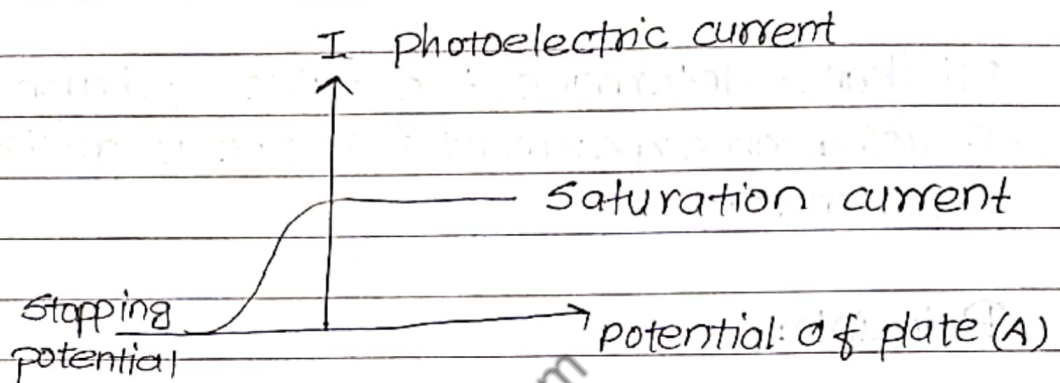 I photoelectric current
Saturation current
Stopping
potential
potential of plate (A)
m